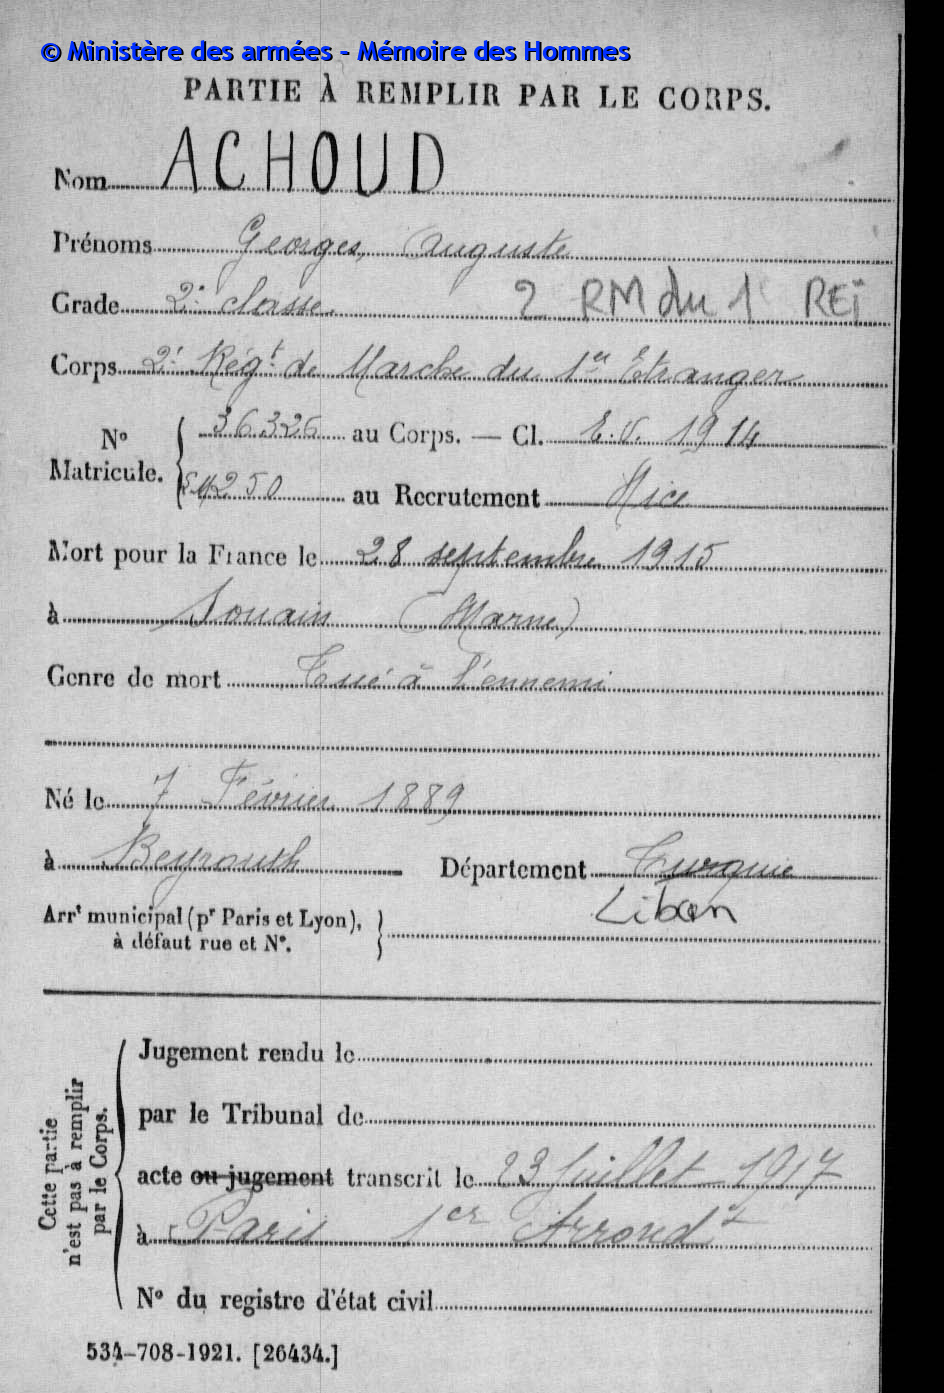 © Ministère des armées - Mémoire des Hommes
PARTIE À REMPLIR PAR LE CORPS.
Nom ACHOUD
Prénoms Georges, Auguste
Grade 2e classe 2 RM du 1 REI
Corps 2e Régt de Marche du 1er Etranger
No Matricule. { 36326 au Corps. — Cl. E.V. 1914
250 au Recrutement Nice
Mort pour la France le 28 septembre 1915
à Souain (Marne)
Genre de mort Tué à l'ennemi
Né le 7 Février 1889
à Beyrouth Département Turquie
Liban
Arrt municipal (pr Paris et Lyon),
à défaut rue et No.
Cette partie
n'est pas à remplir
par le Corps.
Jugement rendu le
par le Tribunal de
acte ou jugement transcrit le 23 Juillet 1917
à Paris 1er Arrondt
No du registre d'état civil
534-708-1921. [26434.]